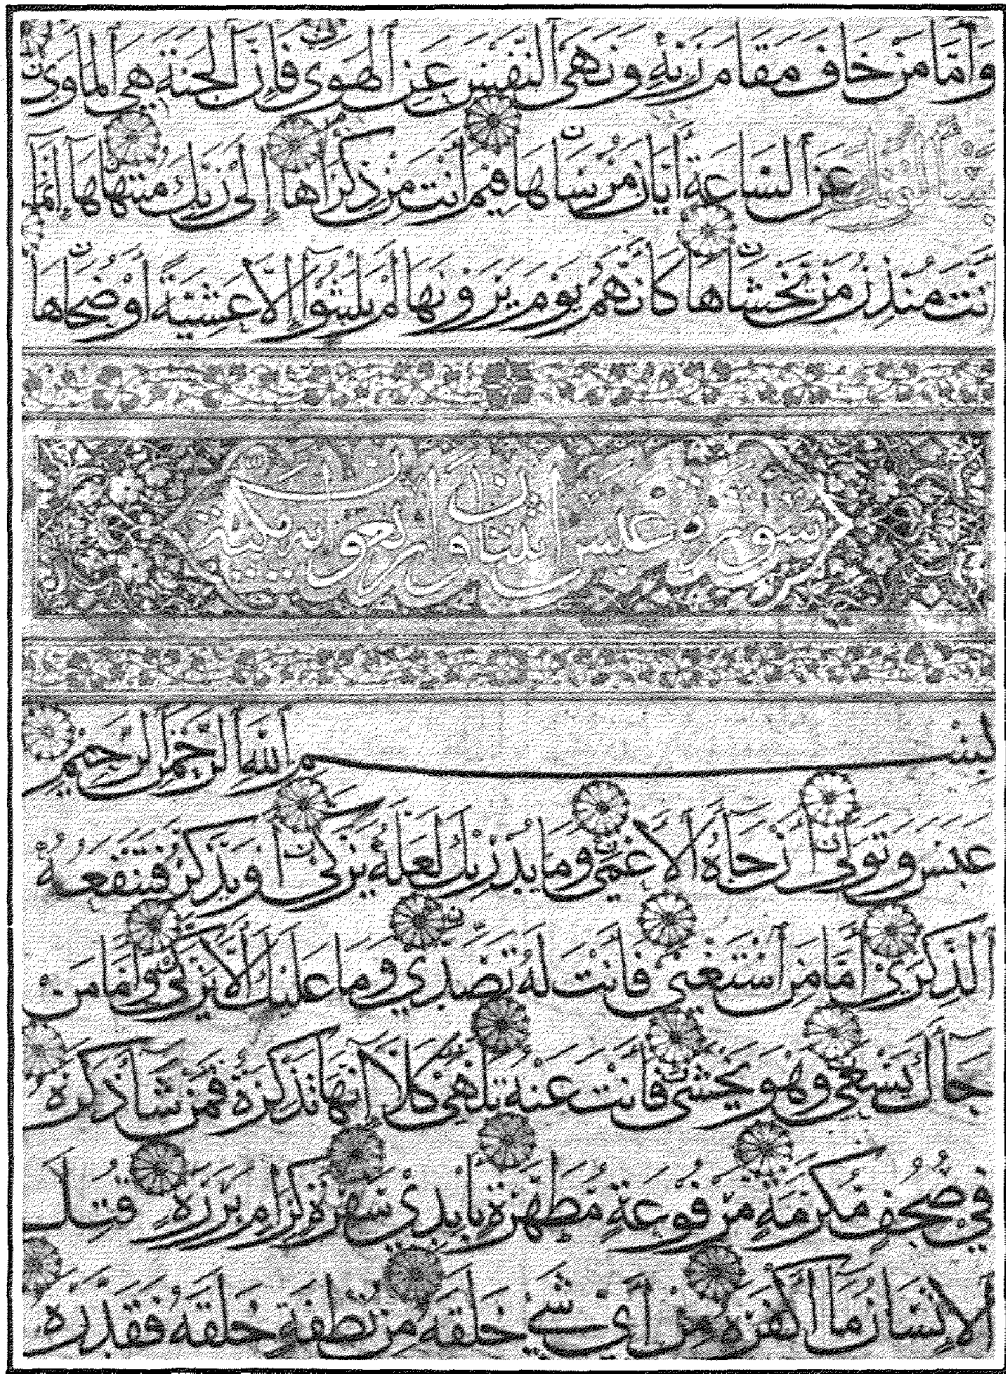 وَأَمَّا مَنْ خَافَ مَقَامَ رَبِّهِ وَنَهَى النَّفْسَ عَنِ الْهَوَى فَإِنَّ الْجَنَّةَ هِيَ الْمَأْوَى
يَسْأَلُونَكَ عَنِ السَّاعَةِ أَيَّانَ مُرْسَاهَا فِيمَ أَنْتَ مِنْ ذِكْرَاهَا إِلَى رَبِّكَ مُنْتَهَاهَا إِنَّمَا
أَنْتَ مُنْذِرُ مَنْ يَخْشَاهَا كَأَنَّهُمْ يَوْمَ يَرَوْنَهَا لَمْ يَلْبَثُوا إِلَّا عَشِيَّةً أَوْ ضُحَاهَا
سورة عبس اثنتان وأربعون آية مكية
بِسْمِ اللَّهِ الرَّحْمَنِ الرَّحِيمِ
عَبَسَ وَتَوَلَّى أَنْ جَاءَهُ الْأَعْمَى وَمَا يُدْرِيكَ لَعَلَّهُ يَزَّكَّى أَوْ يَذَّكَّرُ فَتَنْفَعَهُ
الذِّكْرَى أَمَّا مَنِ اسْتَغْنَى فَأَنْتَ لَهُ تَصَدَّى وَمَا عَلَيْكَ أَلَّا يَزَّكَّى وَأَمَّا مَنْ
جَاءَكَ يَسْعَى وَهُوَ يَخْشَى فَأَنْتَ عَنْهُ تَلَهَّى كَلَّا إِنَّهَا تَذْكِرَةٌ فَمَنْ شَاءَ ذَكَرَهُ
فِي صُحُفٍ مُكَرَّمَةٍ مَرْفُوعَةٍ مُطَهَّرَةٍ بِأَيْدِي سَفَرَةٍ كِرَامٍ بَرَرَةٍ قُتِلَ
الْإِنْسَانُ مَا أَكْفَرَهُ مِنْ أَيِّ شَيْءٍ خَلَقَهُ مِنْ نُطْفَةٍ خَلَقَهُ فَقَدَّرَهُ